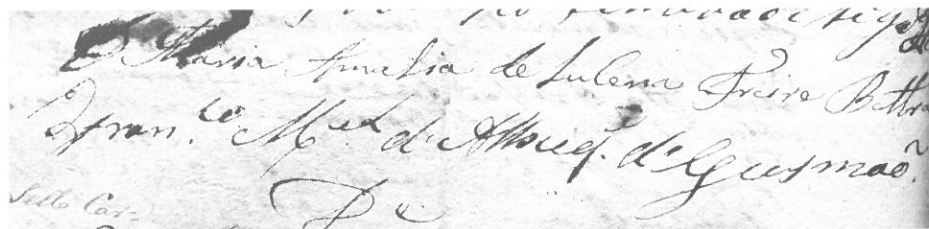 D Maria Amalia de Lulena Freire Bettr
Fran.co M.el d'Albuq. de Gusmaõ.
De
Sello Car